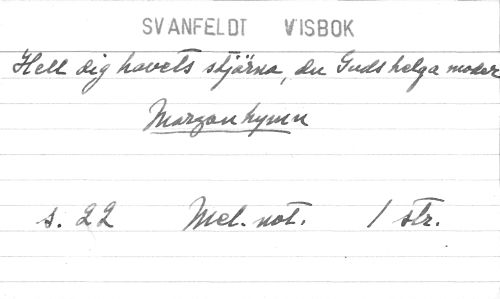 SVANFELDT VISBOK
Hell dig havets stjärna, du Guds helga moder
Morgonhymn
s. 22 Mel. not. 1 str.